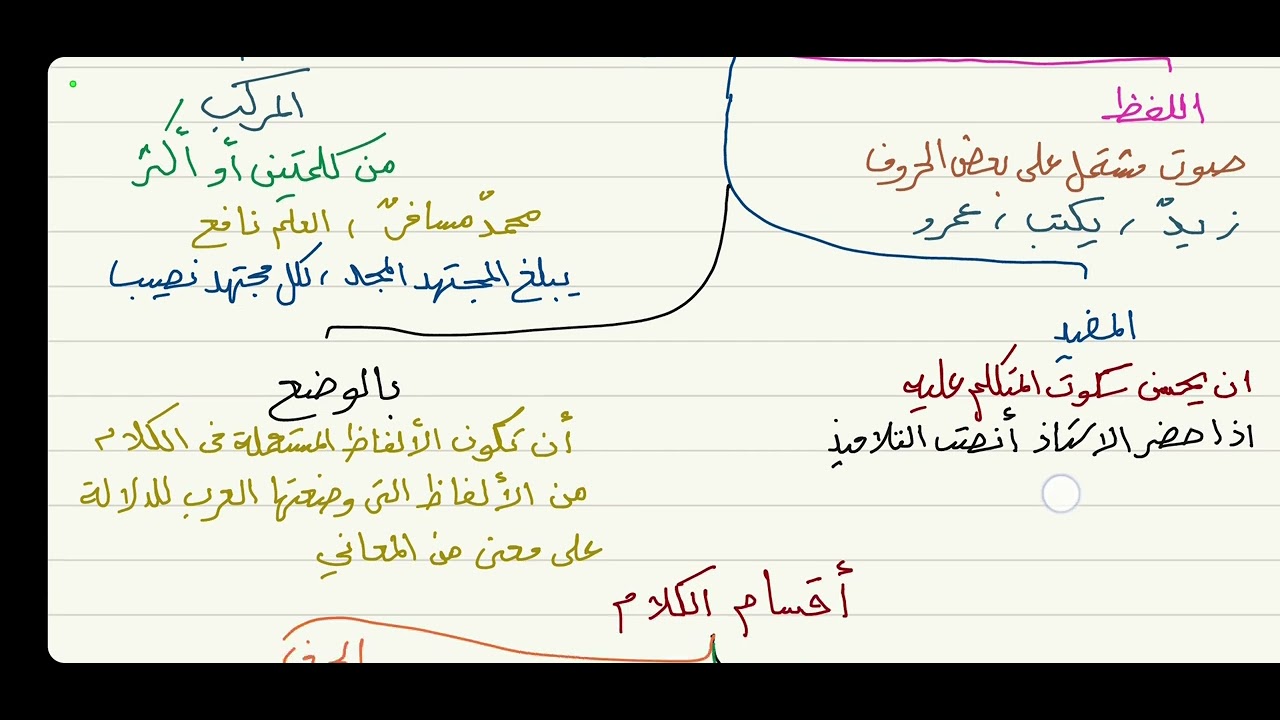 اللفظ
صوت مشتمل على بعض الحروف
زيدٌ ، يكتب ، عمرو
المركب
من كلمتين أو أكثر
محمدٌ مسافرٌ ، العلم نافع
يبلغ المجتهد المجد ، لكل مجتهد نصيب
المفيد
ان يحسن سكوت المتكلم عليه
اذا حضر الاستاذ أنصت التلاميذ
بالوضع
أن تكون الألفاظ المستعملة فى الكلام
من الألفاظ التى وضعتها العرب للدلالة
على معنى من المعاني
أقسام الكلام